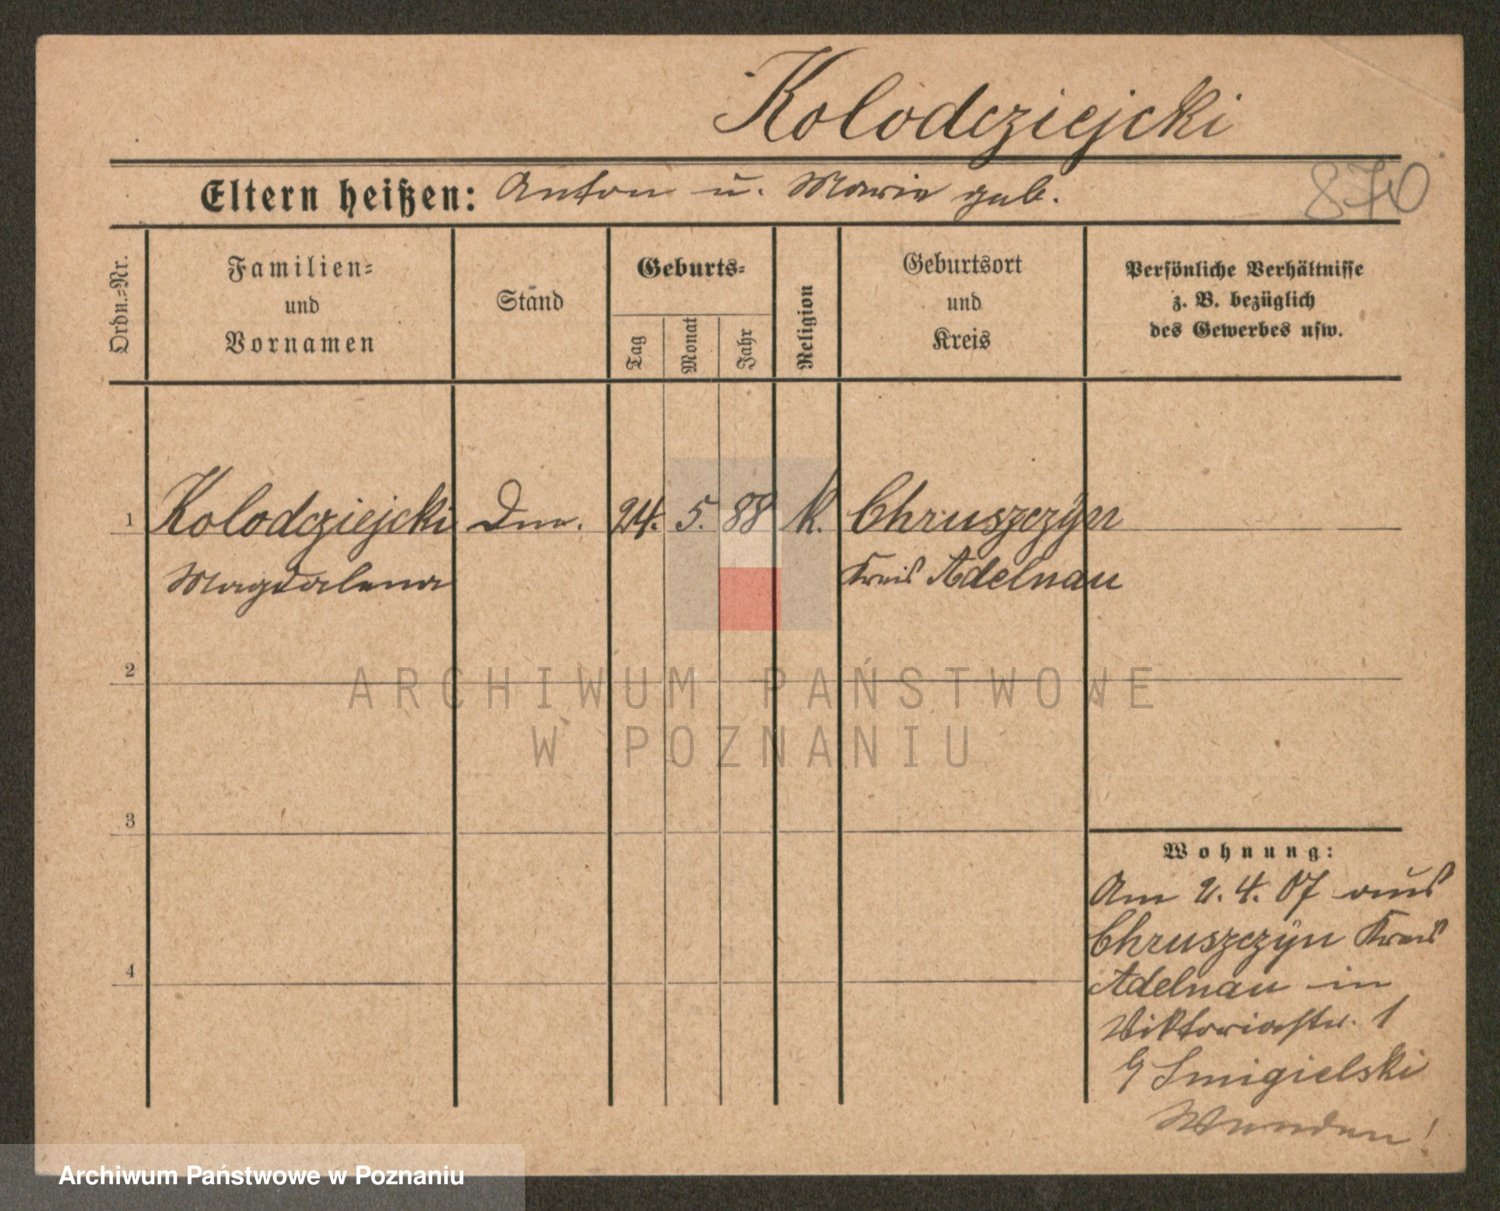 Kolodcziejcki
Eltern heißen: Anton u. Marie geb.
870
Ordn.=Nr.
Familien=
und
Vornamen
Stand
Geburts=
Tag
Monat
Jahr
Religion
Geburtsort
und
Kreis
Persönliche Verhältnisse
z. B. bezüglich
des Gewerbes usw.
1 Kolodcziejcki 24. 5. 88 k. Chruszczÿn
Magdalena Kreis Adelnau
2
3
4
Wohnung:
Am 2. 4. 07 aus
Chruszczÿn Kreis
Adelnau in
Viktoriastr. 1
Smigielski
ARCHIWUM PAŃSTWOWE
W POZNANIU
Archiwum Państwowe w Poznaniu